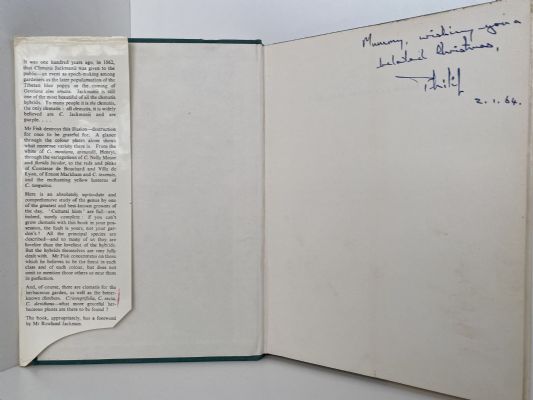 It was one hundred years ago, in 1862,
that Clematis Jackmanii was given to the
public—an event as epoch-making among
gardeners as the later popularisation of the
Tibetan blue poppy or the coming of
Gentiana sino ornata. Jackmanii is still
one of the most beautiful of all the clematis
hybrids. To many people it is the clematis,
the only clematis: all clematis, it is widely
believed are C. Jackmanii and are
purple. . . .
Mr Fisk destroys this illusion—destruction
for once to be grateful for. A glance
through the colour plates alone shows
what immense variety there is. From the
white of C. montana, armandii, Henryi,
through the variegations of C. Nelly Moser
and florida bicolor, to the reds and pinks
of Comtesse de Bouchard and Ville de
Lyon, of Ernest Markham and C. texensis,
and the enchanting yellow lanterns of
C. tangutica.
Here is an absolutely up-to-date and
comprehensive study of the genus by one
of the greatest and best-known growers of
the day. 'Cultural hints' are full—are,
indeed, surely complete: if you can't
grow clematis with this book in your pos-
session, the fault is yours, not your gar-
den's! All the principal species are
described—and to many of us they are
lovelier than the loveliest of the hybrids.
But the hybrids themselves are very fully
dealt with. Mr Fisk concentrates on those
which he believes to be the finest in each
class and of each colour, but does not
omit to mention those others so near them
in perfection.
And, of course, there are clematis for the
herbaceous garden, as well as the better-
known climbers. C. integrifolia, C. recta,
C. davidiana—what more graceful her-
baceous plants are there to be found?
The book, appropriately, has a foreword
by Mr Rowland Jackman.
Mummy, wishing you a
belated Christmas,
Philip
2. 1. 64.